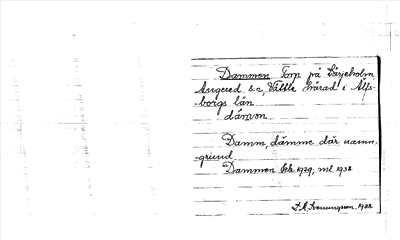 Dammen Torp på Lärjeholm,
Angered s:n, Vättle härad i Älfs-
borgs län.
dámən.
Damm, dämme där namn.
-grund.
Dammen 1929, ml 1938
1938